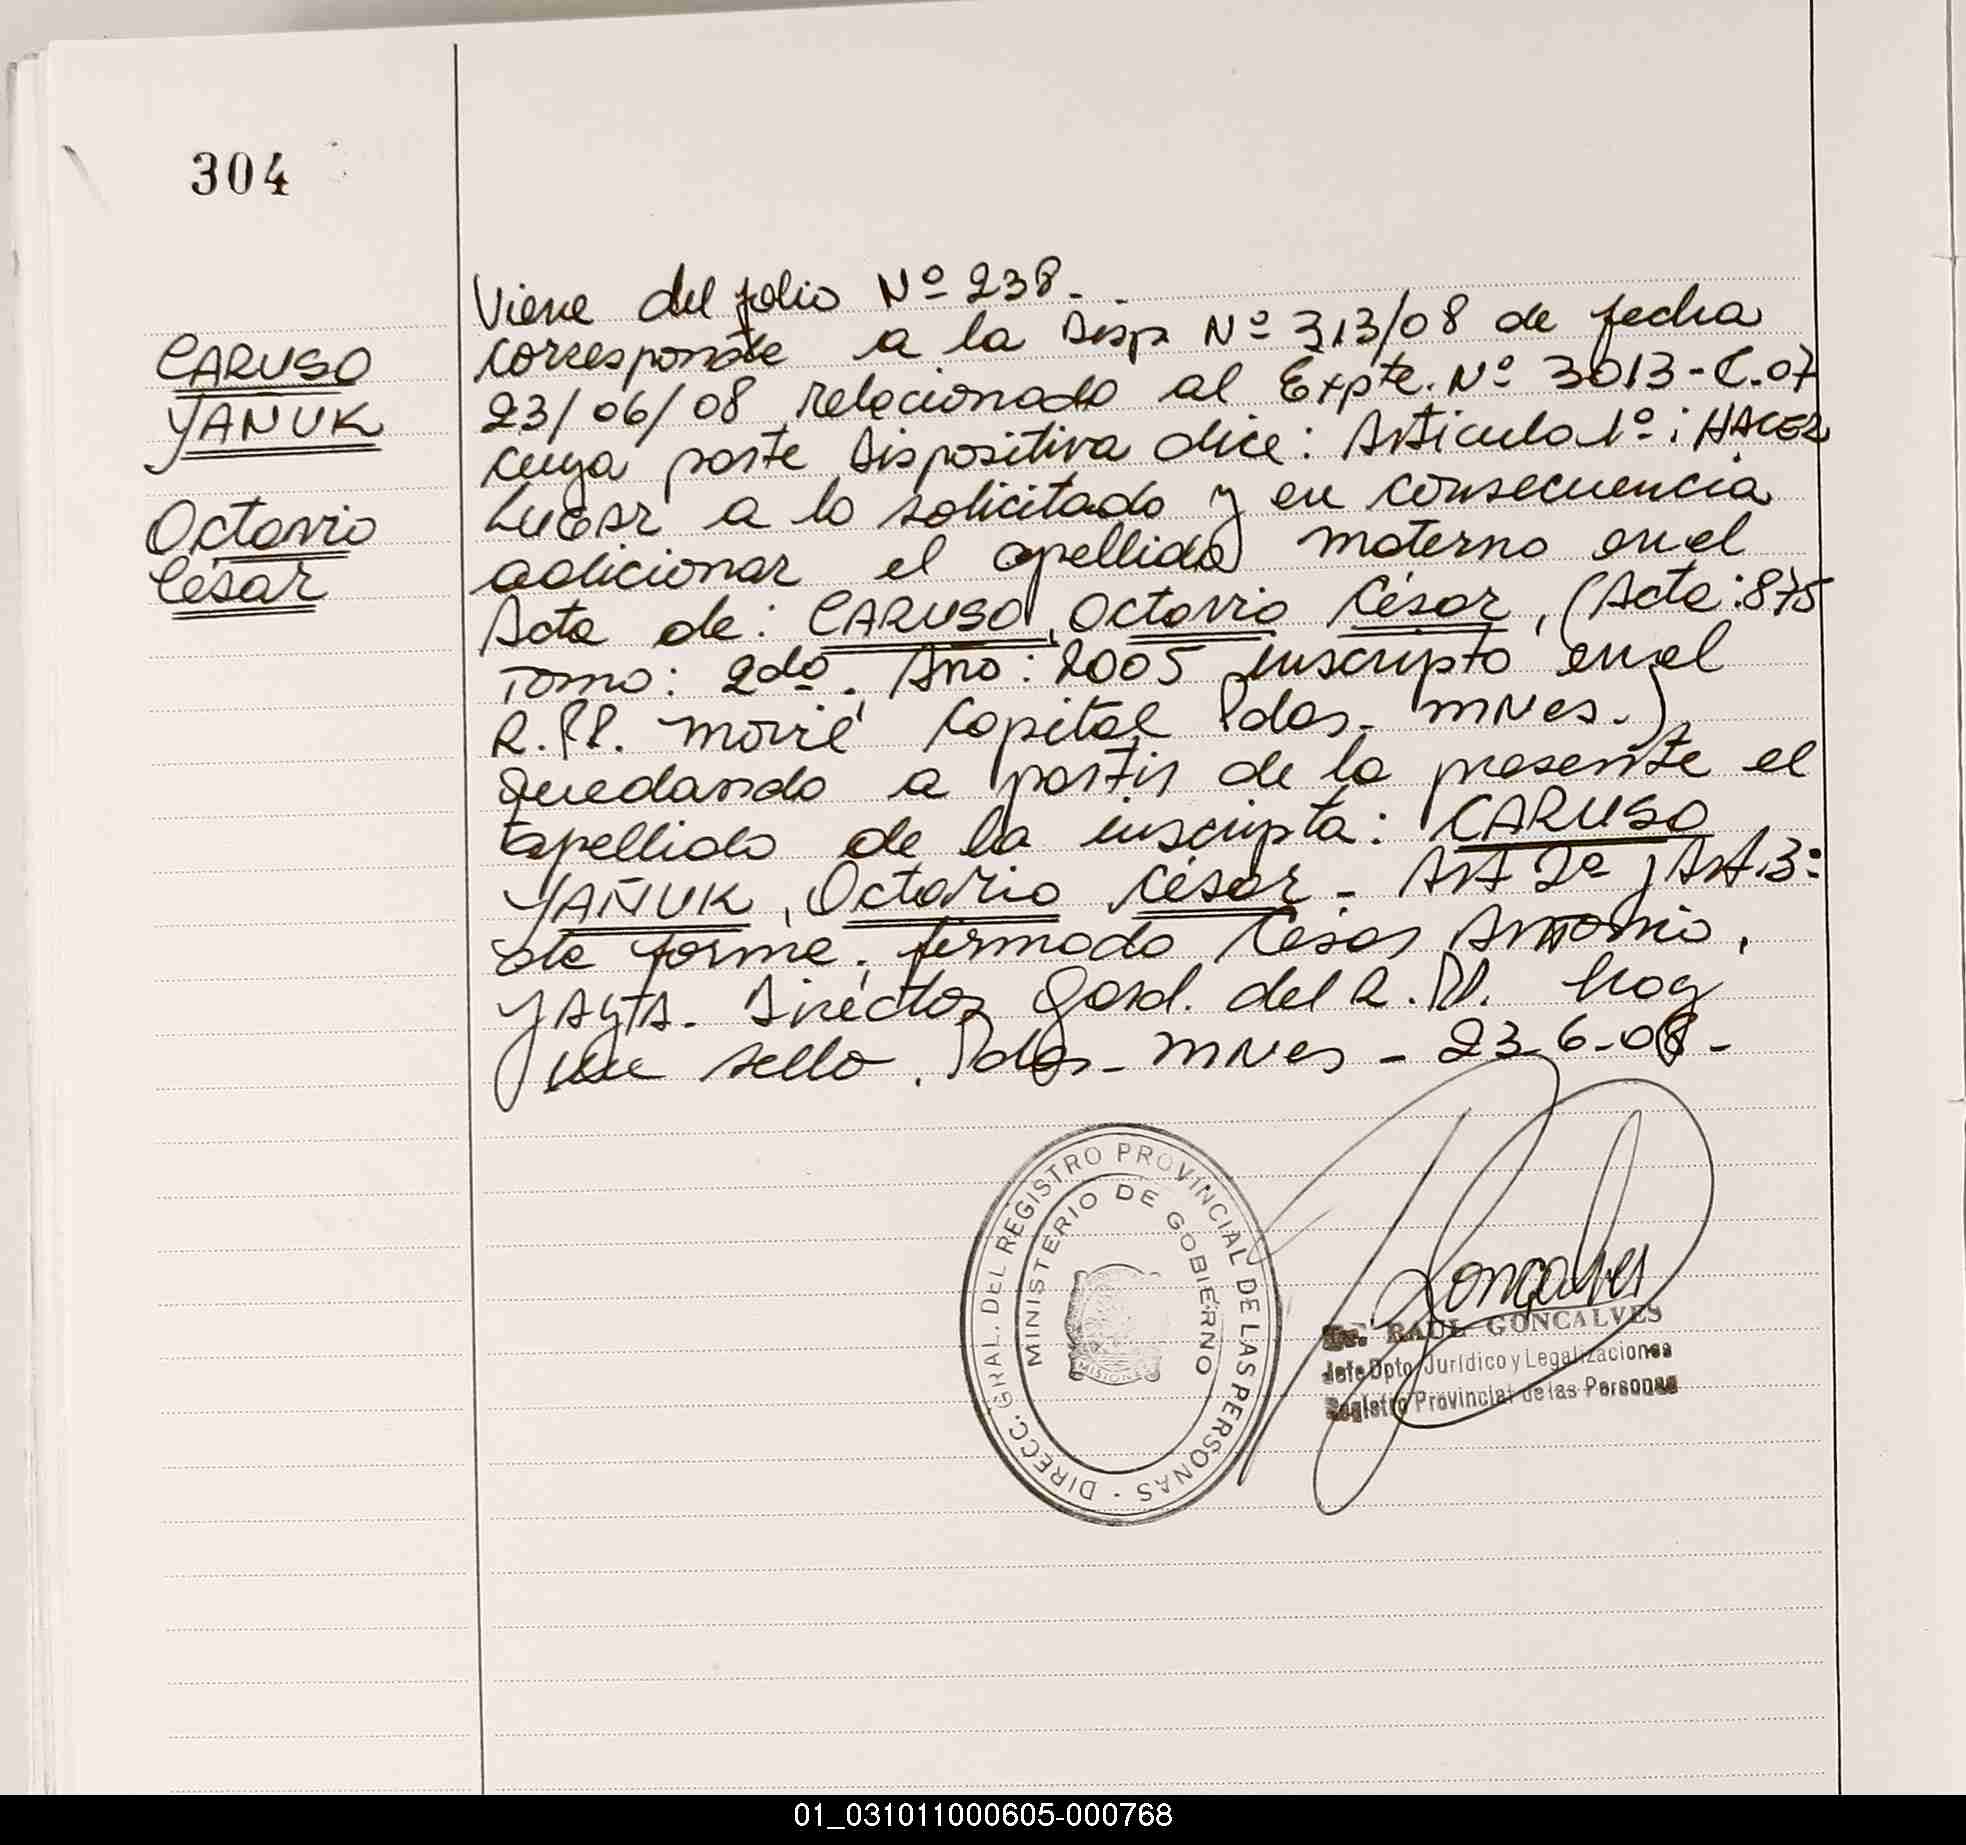 304
CARUSO
YANUK
Octavio
César
Viene del folio Nº 238.-
correspondte a la Disp Nº 313/08 de fecha
23/06/08 relacionado al Expte. Nº 3013-C.07
cuya parte Dispositiva dice: Articulo 1º: HACER
LUGAR a lo solicitado y en consecuencia
adicionar el apellido materno en el
Acta de: CARUSO, Octavio César, (Acta: 875
Tomo: 2do. Año: 2005 inscripto en el
R.PP. Movil Capital Pdas. MNes.)
quedando a partir de la presente el
apellido de la inscripta: CARUSO
YAÑUK, Octavio César - Art 2º y Art. 3º
de forma. firmado César Antonio,
YAYA. Director Gral. del R.PP. hay
un sello. Pdas - MNes - 23-6-08-
DIRECC. GRAL. DEL REGISTRO PROVINCIAL DE LAS PERSONAS -
MINISTERIO DE GOBIERNO
MISIONES
Goncalves
Dr. RAUL GONCALVES
Jefe Dpto. Jurídico y Legalizaciones
Registro Provincial de las Personas
01_031011000605-000768